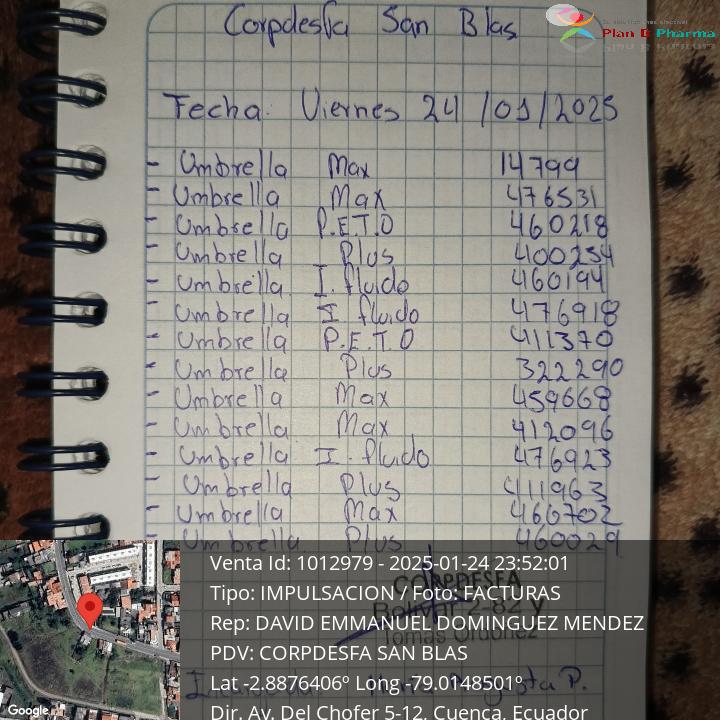 Corpdesfa San Blas
Plan D Pharma
Fecha: Viernes 24/01/2025
- Umbrella Max 14799
- Umbrella Max 476531
- Umbrella P.E.T.O 460218
- Umbrella Plus 400254
- Umbrella I. fluido 460194
- Umbrella I fluido 476918
- Umbrella P.E.T.O 411370
- Umbrella Plus 322290
- Umbrella Max 459668
- Umbrella Max 412096
- Umbrella I. fluido 476923
- Umbrella Plus 411963
- Umbrella Max 460702
- Umbrella Plus 460029
CORPDESFA
Bolívar 2-82 y
Tomás Ordóñez
Venta Id: 1012979 - 2025-01-24 23:52:01
Tipo: IMPULSACION / Foto: FACTURAS
Rep: DAVID EMMANUEL DOMINGUEZ MENDEZ
PDV: CORPDESFA SAN BLAS
Lat -2.8876406º Long -79.0148501º
Dir. Av. Del Chofer 5-12, Cuenca, Ecuador
Google